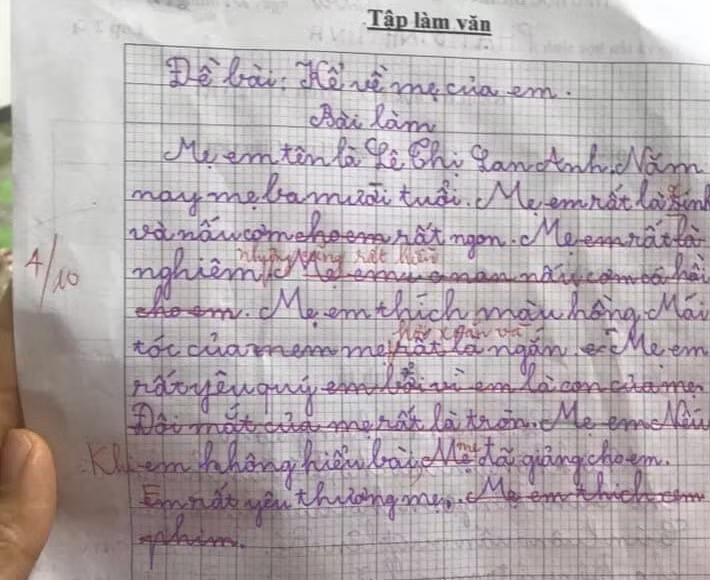 Tập làm văn
Đề bài: Kể về mẹ của em.
Bài làm
Mẹ em tên là Lê Thị Lan Anh. Năm
nay mẹ ba mươi tuổi. Mẹ em rất là xinh
và nấu cơm cho em rất ngon. Mẹ em rất là
nhưng cũng rất hiền
4/10
nghiêm, Mẹ em nấu cơm cá hồi
cho em. Mẹ em thích màu hồng. Mái
hơi xoăn và
tóc của mẹ rất là ngắn. Mẹ em
rất yêu quý em bởi vì em là con của mẹ
Đôi mắt của mẹ rất là tròn. Mẹ em Nếu
Khi em không hiểu bài, Mẹ mẹ đã giảng cho em.
Em rất yêu thương mẹ. Mẹ em thích xem
phim.